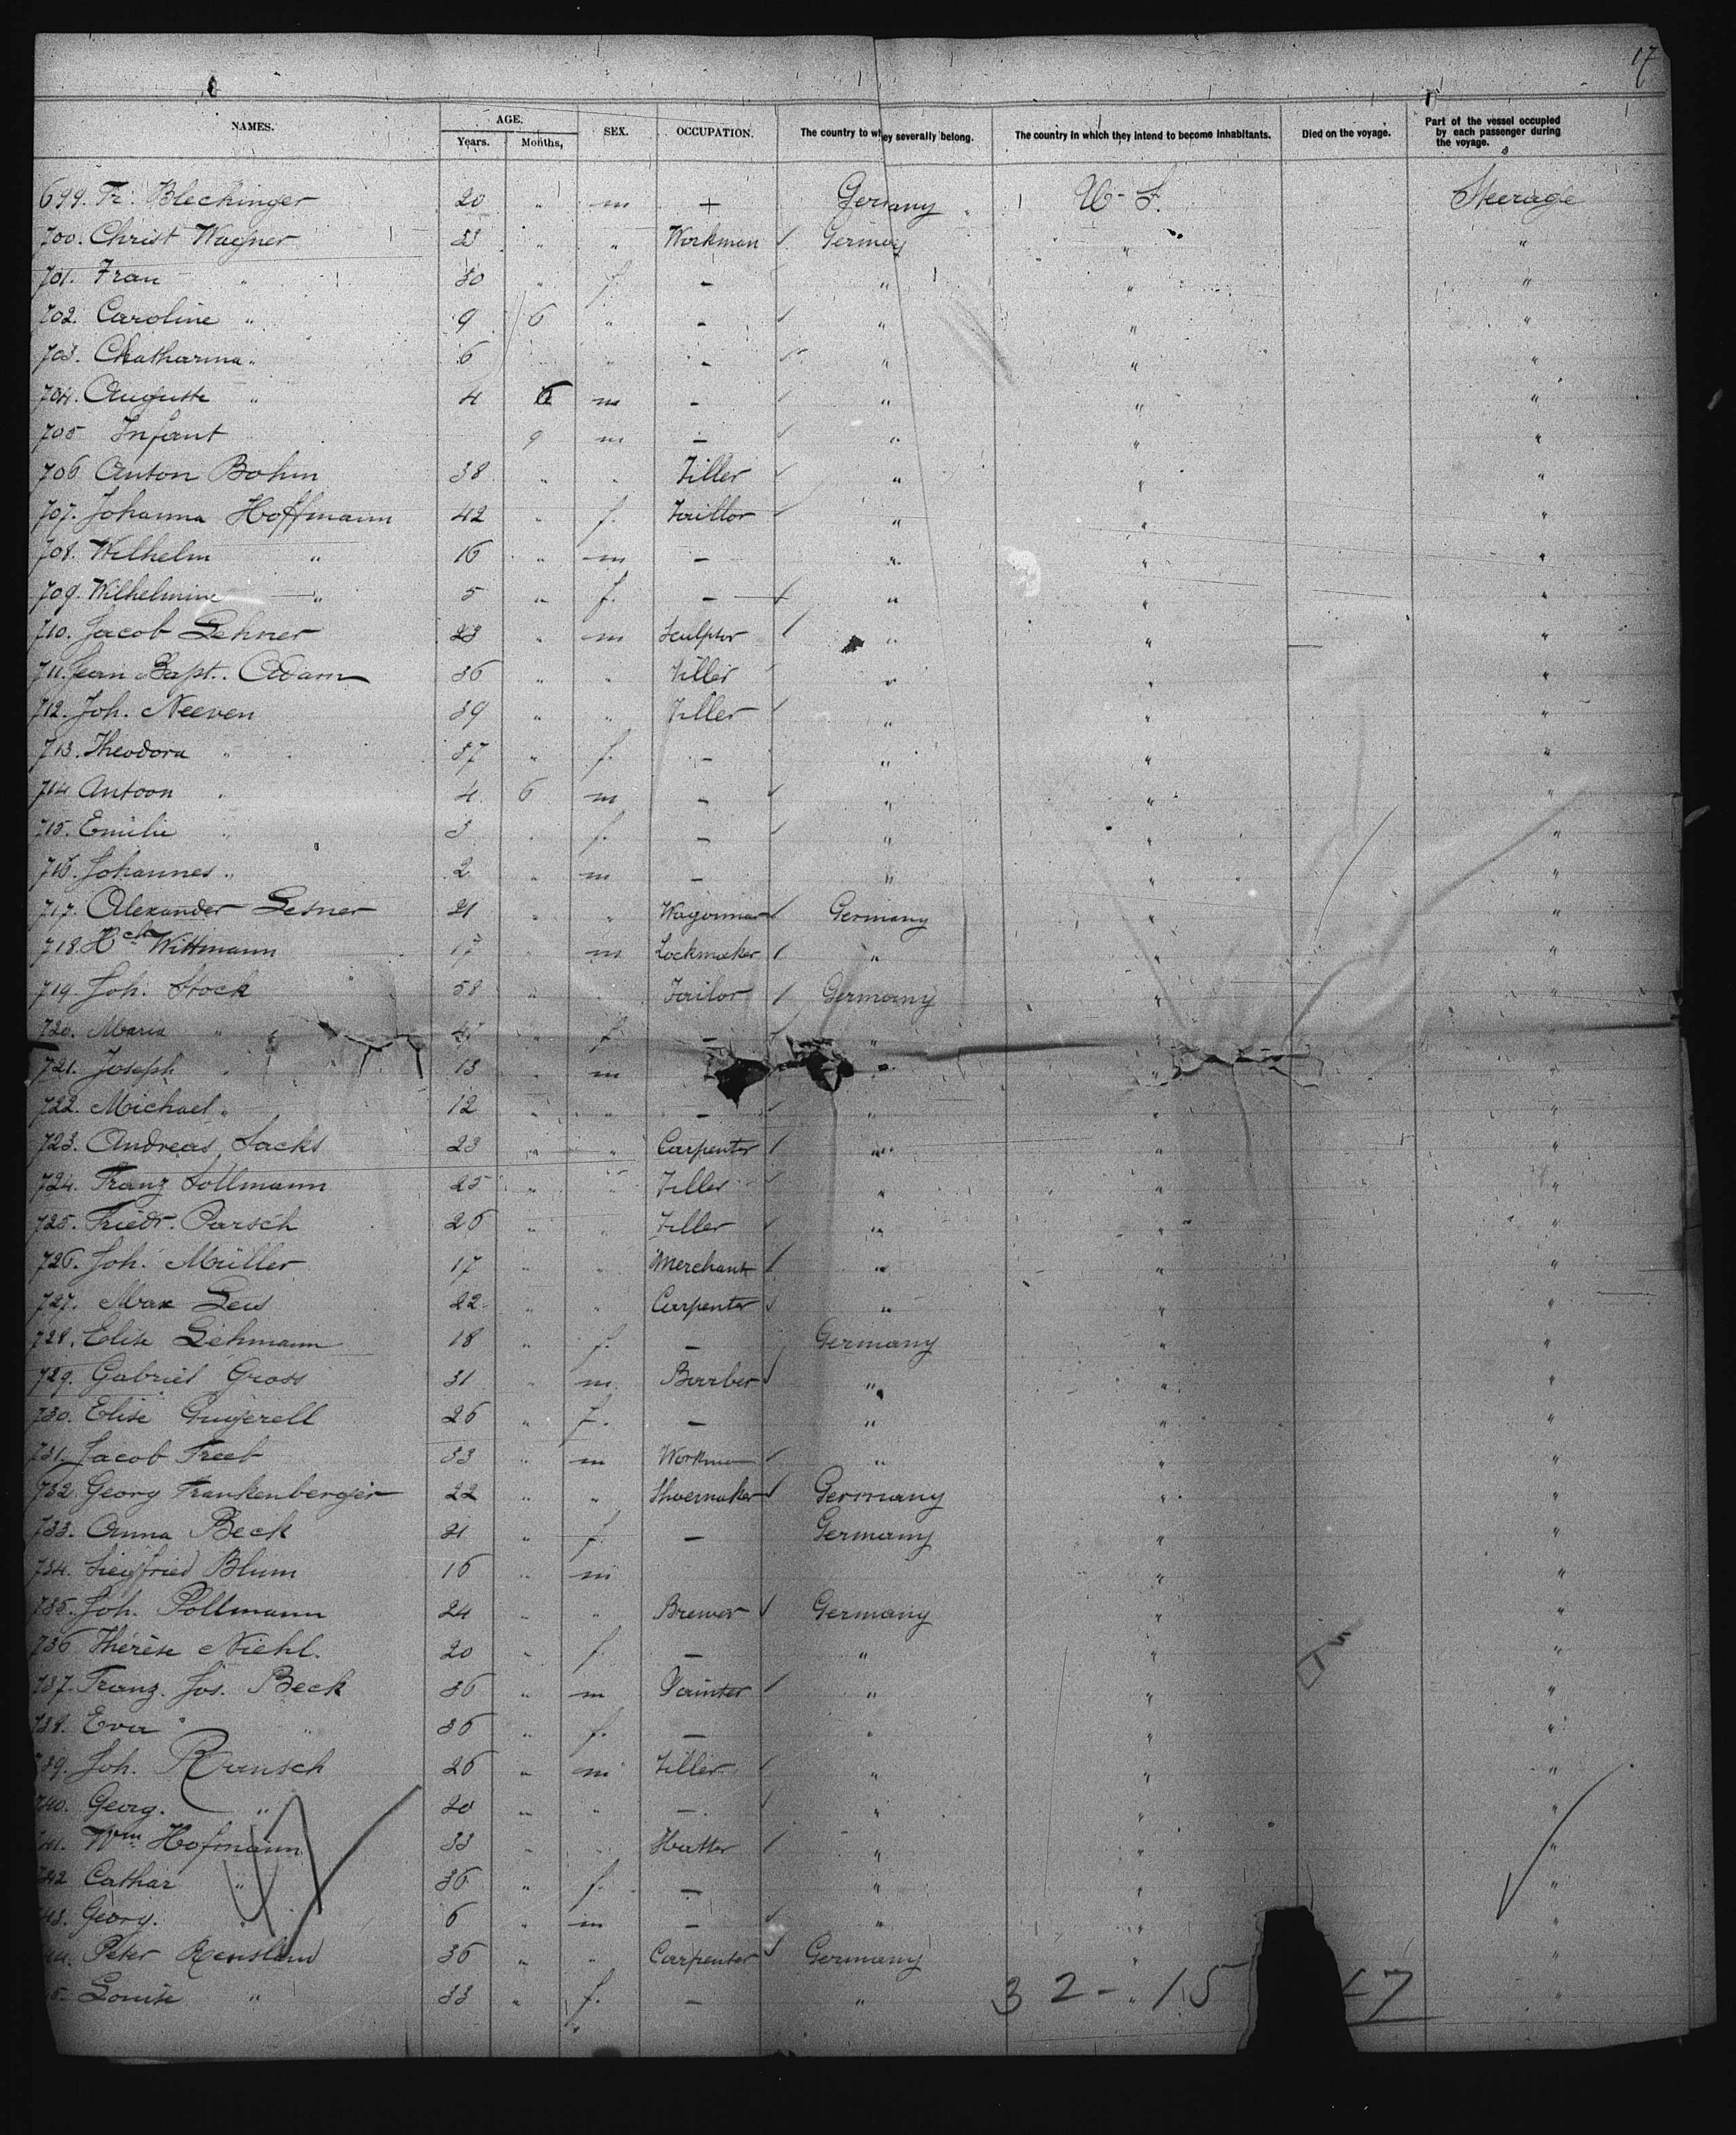 17
NAMES. AGE. Years. Months, SEX. OCCUPATION. The country to they severally belong. The country in which they intend to become inhabitants. Died on the voyage. Part of the vessel occupied by each passenger during the voyage.
699. Fr. Blechinger 20 " m + Germany U. S. Steerage
700. Christ Wagner 33 " " Workman Germany " "
701. Frau " 30 " f. - " " "
702. Caroline " 9 6 " - " " "
703. Chatharina " 6 " - " " "
704. Auguste " 4 6 m - " " "
705 Infant 9 m - " " "
706 Anton Bohm 38 " " Tiller " " "
707. Johanna Hoffmann 42 " f. Taillor " " "
708. Wilhelm " 16 " m - " " "
709. Wilhelmine " 5 " f. - " " "
710. Jacob Lehner 23 " m Sculptor " " "
711. Jean Bapt. Adam 36 " " Tiller " " "
712. Joh. Neeven 39 " " Tiller " " "
713. Theodora " 37 " f. - " " "
714 Antoon " 4 6 m - " " "
715. Emilie " 3 " f. - " " "
716. Johannes " 2 " m - " " "
717. Alexander Lesner 21 " " Wagonman Germany " "
718. Hch Wittmann 17 " m Lockmaker " " "
719. Joh. Stock 58 " " Tailor Germany " "
720. Maria " " f - " " "
721. Joseph " 13 " m " " "
722. Michael " 12 " " - " " "
723. Andreas Sacks 23 " " Carpenter " " "
724. Franz Sollmann 25 " " Tiller " " "
725. Friedr. Parsch 26 " " Tiller " " "
726. Joh. Müller 17 " " Merchant " " "
727. Max Leis 22 " " Carpenter " " "
728. Elise Lehmann 18 " f. - Germany " "
729. Gabriel Gross 31 " m Barber " " "
730. Elise 26 " f. - " " "
731. Jacob Treeb 33 " m Workman " " "
732. Georg Frankenberger 22 " " Shoemaker Germany " "
733. Anna Beck 21 " f. - Germany " "
734. Siegfried Blum 16 " m " "
735. Joh. Pollmann 24 " " Brewer Germany " "
736 Thérèse Niehl. 20 " f. - " " "
737. Franz. Jos. Beck 36 " m Painter " " "
738. Eva " " 36 " f. - " " "
739. Joh. Raunsch 26 " m Tiller " " "
740. Georg. " 20 " " - " " "
741. Wm Hofmann 33 " " Hatter " " "
742 Cathar " 36 " f. - " " "
743. Georg. " 6 " m - " " "
744. Peter 36 " " Carpenter Germany " "
45. Louise " 33 " f. - " " "
32 - 15 47